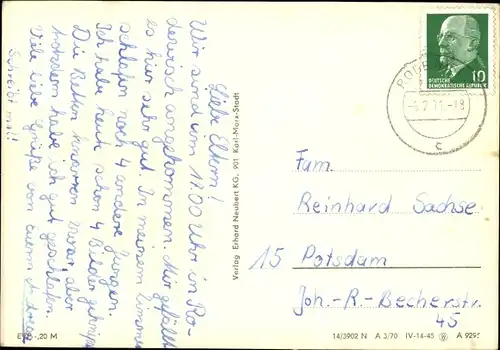 Liebe Eltern!
Wir sind um 17.00 Uhr in Ro-
dewisch angekommen. Mir gefällt
es hier sehr gut. In meinem Zimmer
schlafen noch 4 andere Jungen.
Ich habe heut schon 4 Bilder geknipst
Die Betten knarren zwar, aber
trotzdem habe ich gut geschlafen.
Viele liebe Grüße von Euerm
Schreibt mal!
EVP -,20 M
Verlag Erhard Neubert KG, 901 Karl-Marx-Stadt
DEUTSCHE
DEMOKRATISCHE REPUBLIK
10
71.-18
c
Fam.
Reinhard Sachse
15 Potsdam
Joh.-R.-Becherstr.
45
14/3902 N A 3/70 IV-14-45 A 9295